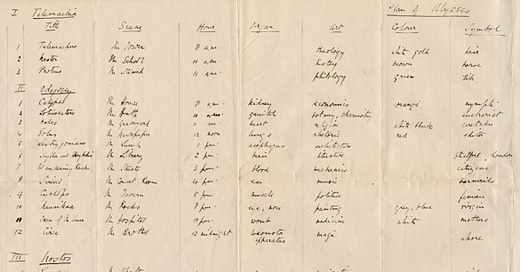 Plan of Ulysses
I Telemachia
Title Scene Hour Organ Art Colour Symbol
1 Telemachus The Tower 8 a.m. theology white gold heir
2 Nestor The School 10 a.m. history brown horse
3 Proteus The Strand 11 a.m. philology green tide
II Odyssey
1 Calypso The House 8 a.m. kidney economics orange nymph
2 Lotuseaters The Bath 10 a.m. genitals botany, chemistry eucharist
3 Hades The Graveyard 11 a.m. heart religion white black caretaker
4 Eolus The Newspaper 12 noon lungs rhetoric red editor
5 Lestrygonians The Lunch 1 p.m. esophagus architecture
6 Scylla and Charybdis The Library 2 p.m. brain literature Stratford, London
7 Wandering Rocks The Streets 3 p.m. blood mechanics citizens
8 Sirens The Concert Room 4 p.m. ear music barmaids
9 Cyclops The Tavern 5 p.m. muscle politics fenian
10 Nausikaa The Rocks 8 p.m. eye, nose painting grey, blue virgin
11 Oxen of the Sun The Hospital 10 p.m. womb medicine white mothers
12 Circe The Brothel 12 midnight locomotor apparatus magic whore
III Nostos